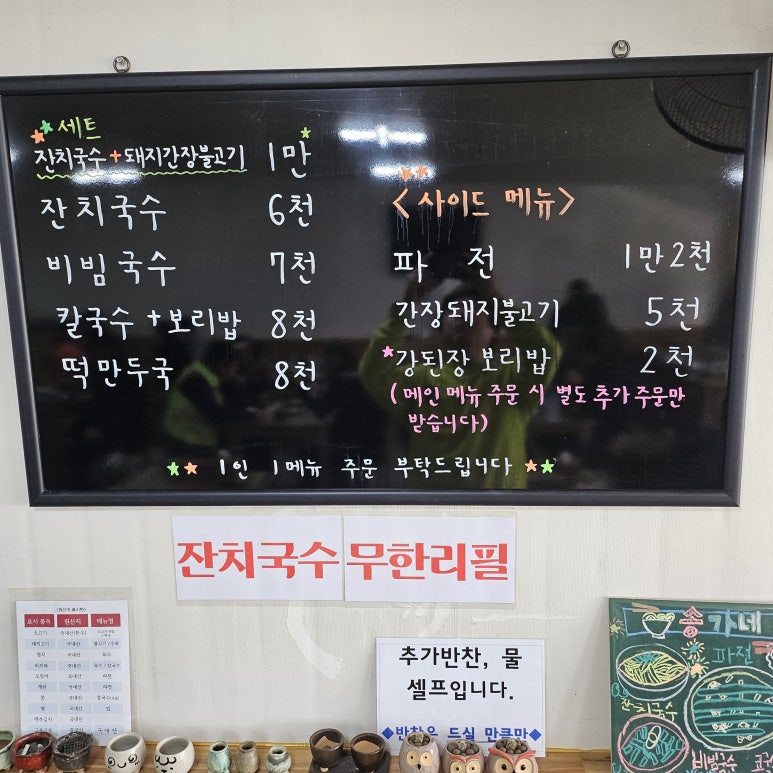 세트
잔치국수 + 돼지간장불고기 1만
잔치국수 6천
비빔국수 7천
칼국수 + 보리밥 8천
떡만두국 8천
<사이드 메뉴>
파전 1만2천
간장돼지불고기 5천
강된장 보리밥 2천
(메인 메뉴 주문 시 별도 추가 주문만
받습니다)
1인 1메뉴 주문 부탁드립니다
잔치국수 무한리필
표시 품목 원산지 메뉴명
추가반찬, 물
셀프입니다.
◆반찬은 드실 만큼만◆
송가네
파전
잔치국수
비빔국수